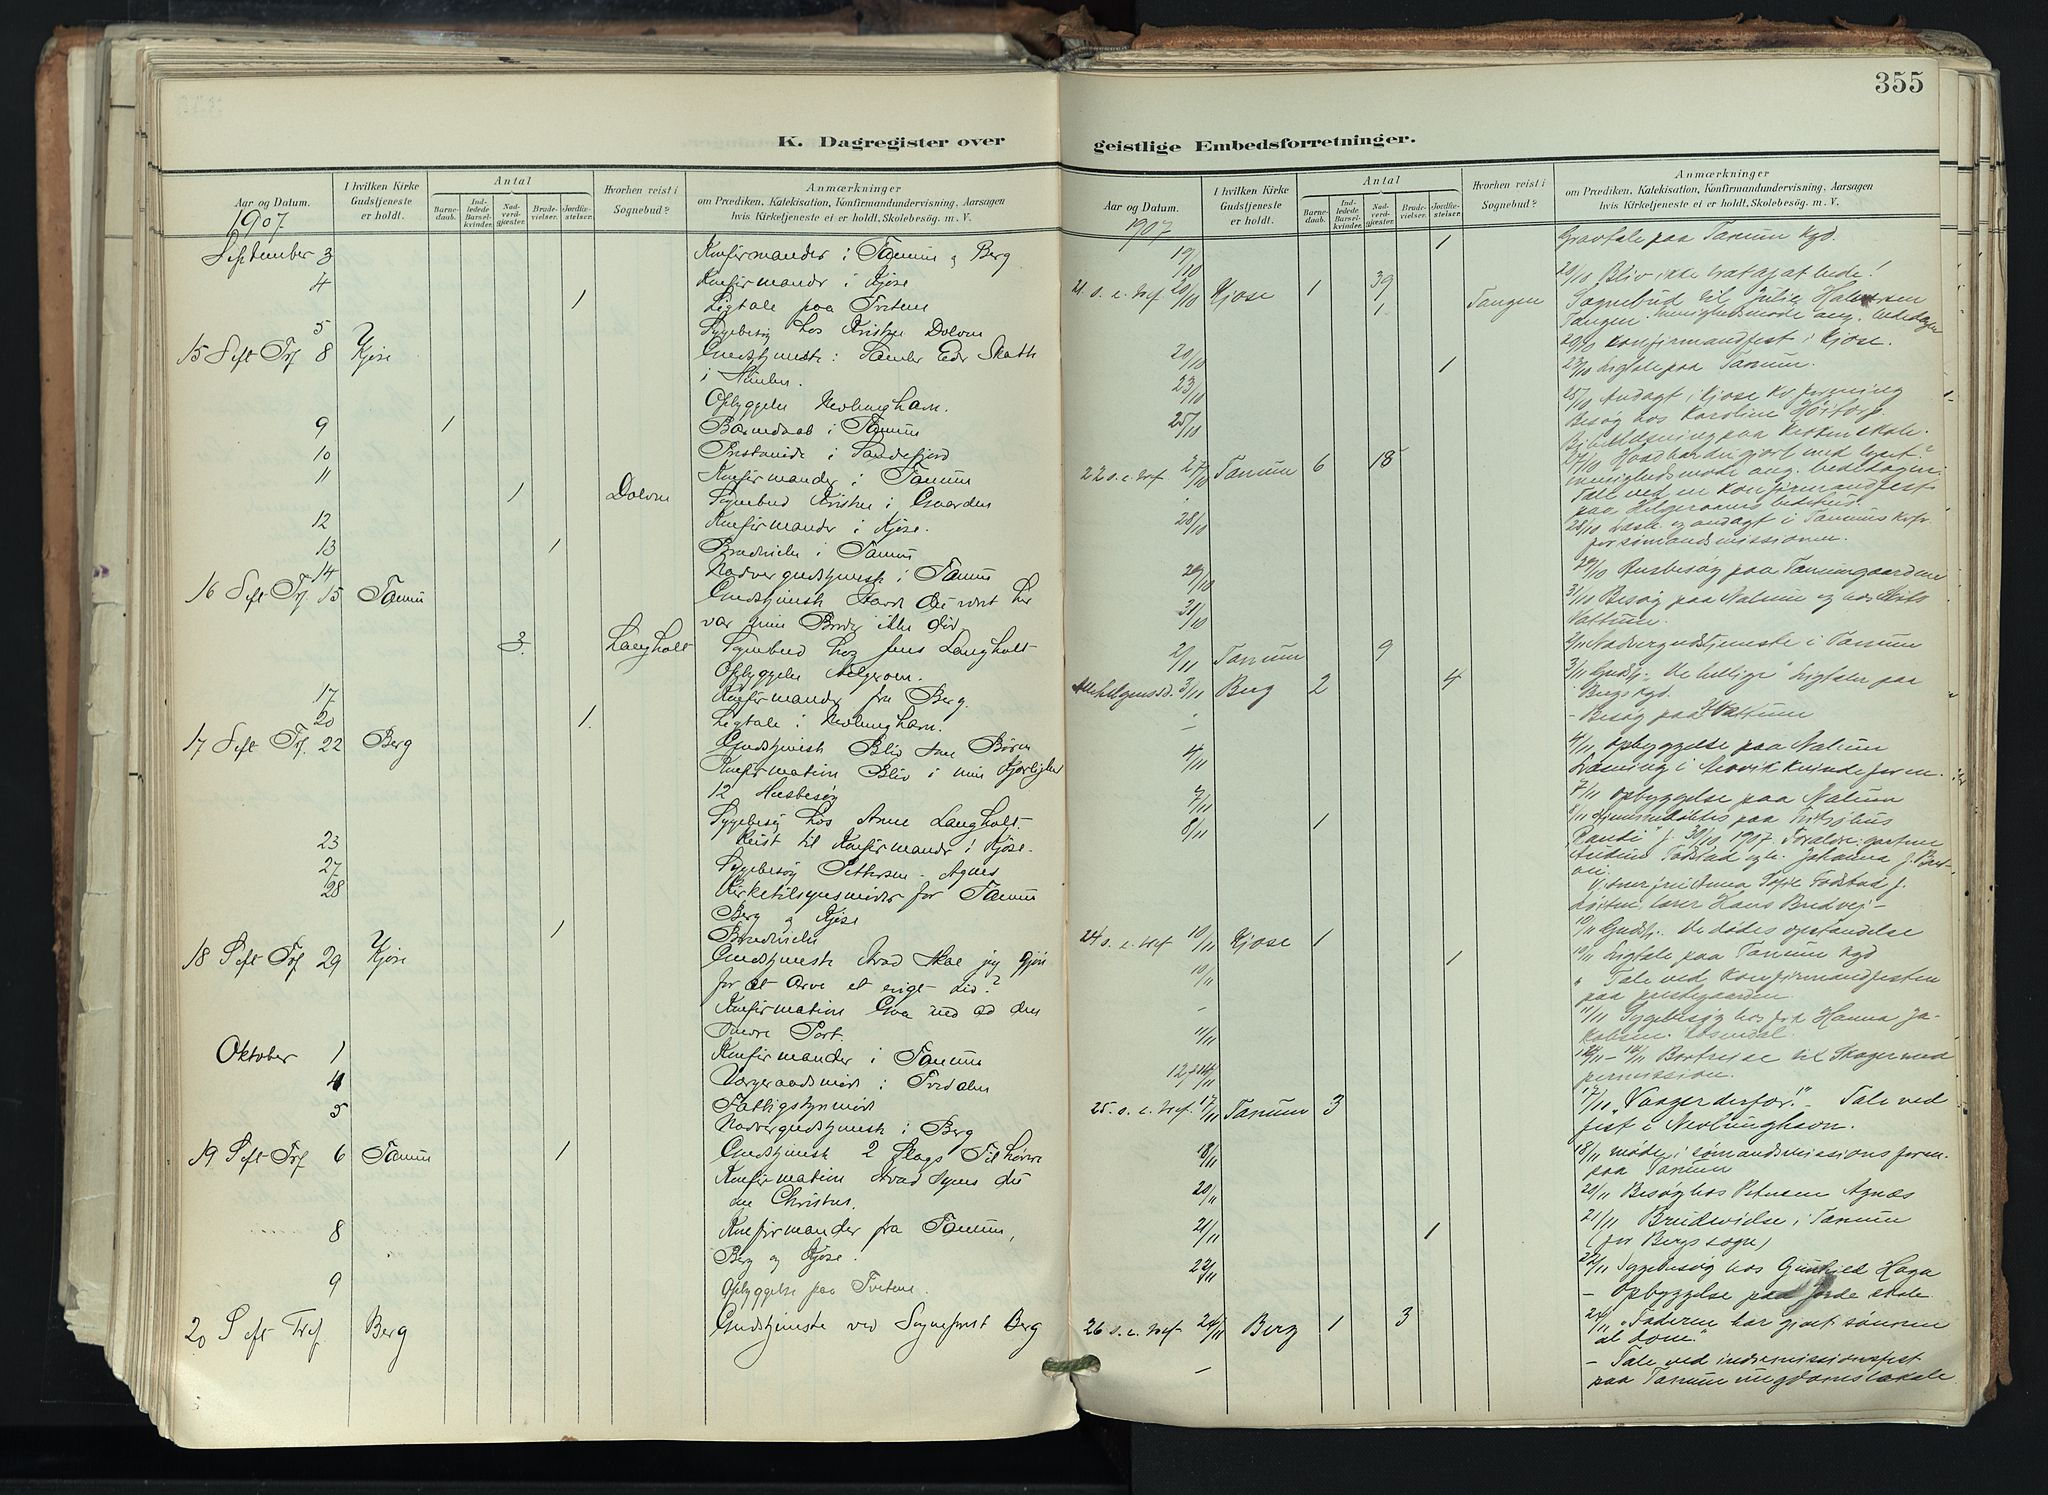 355
K. Dagregister over
geistlige Embedsforretninger.
Aar og Datum.
I hvilken Kirke Gudstjeneste er holdt.
Antal
Barnedaab.
Indledede Barselkvinder.
Nadverdgjester.
Brudevielser.
Jordfæstelser.
Hvorhen reist i Sognebud?
Anmærkninger
om Prædiken, Katekisation, Konfirmandundervisning, Aarsagen
hvis Kirketjeneste ei er holdt, Skolebesøg. m. V.
1907
September 3 Konfirmander i Tanum og Berg
4 Konfirmander i Kjose
1 Ligtale paa Tveten
5 Sygebesøg hos Dolven
15 Seft Trf 8 Kjose Gudstjeneste: Samler Eder Skatte
i Himlen.
Opbyggelse Nevlunghavn.
9 1 Barnedaab i Tanum
10 i Sandefjord
11 Konfirmander i Tanum
1 Dolven Sognebud
12 Konfirmander i Kjose.
13 1 Brudevielse i Tanum
14 Nadvergudstjeneste i Tanum
16 Seft Trf 15 Tanum Gudstjeneste Havde du været her
var min Broder ikke død.
3. Langholt Sognebud hos Jens Langholt
Opbyggelse
17 Konfirmander fra Berg.
20 1. Ligtale i Nevlunghavn.
17 Seft Trf. 22 Berg Gudstjeneste Bliv som Børn
Konfirmation Bliv i min Kjærlighed
12 Husbesøg
Sygebesøg hos Anne Langholt.
23 Reist til Konfirmander i Kjose.
27 Sygebesøg Pettersen Agnes
28 Kirketilsynsmøder for Tanum
Berg og Kjose
1 Brudevielse
18 Seft Trf 29 Kjose Gudstjeneste Hvad skal jeg gjøre
for at arve et evigt Liv?
Konfirmation Gaa ind ad den
snevre Port.
Oktober 1 Konfirmander i Tanum
4 Vergeraadsmøde i
5 Fattigstyrmøde
Nadvergudstjeneste i Berg
19 Seft Trf 6 Tanum 1 Gudstjeneste 2 Slags Tilhørere
Konfirmation Hvad synes du
om Christus.
8 Konfirmander fra Tanum,
Berg og Kjose.
9 Opbyggelse paa Tveten.
20 Seft Tref. Berg Gudstjeneste ved Sogneprest Berg
Aar og Datum.
I hvilken Kirke Gudstjeneste er holdt.
Antal
Barnedaab.
Indledede Barselkvinder.
Nadverdgjester.
Brudevielser.
Jordfæstelser.
Hvorhen reist i Sognebud?
Anmærkninger
om Prædiken, Katekisation, Konfirmandundervisning, Aarsagen
hvis Kirketjeneste ei er holdt, Skolebesøg. m. V.
1907
19/10 1 Gravtale paa Tanum Kgd.
21. s. e. tref 20/10 Kjose 1 39 20/10 Bliv ikke træt af at bede!
1. Tangen Sognebud til Julie Halvorsen
Tangen. Menighedsmøde ang. bededagen
20/10 20/10 Konfirmandfest i Kjose.
23/10 1 23/10 Ligtale paa Tanum.
25/10 25/10 Andagt i Kjose Kv. forening
Besøg hos Karoline
Bibellæsning paa skole.
22 s. e. tref 27/10 Tanum 6 18 27/10 Hvad har du gjort med livet?
menighedsmøde ang. bededagen.
Tale ved en Konfirmandfest
paa Helgeroaens bedehus.
28/10 28/10 og andagt i Tanums kvf.
for sømandsmissionen.
29/10 29/10 Husbesøg paa Tanumgaardene
31/10 31/10 Besøg paa Nalum og hos
Vattum.
2/11 Tanum 9 2/11 Nadvergudstjeneste i Tanum
Allehelgensd. 3/11 Berg 2 4 3/11 Gudstj. "De hellige" Ligtaler paa
Bergs Kgd.
– – Besøg paa Vattum
4/11 4/11 Opbyggelse paa Nalum
Læsning i Nevik kvindeforen.
7/11 7/11 Opbyggelse paa Nalum
8/11 1 8/11 Hjemmedøbtes paa Fritzøhus
"Randi" f. 30/10 1907. Forældre: gartner
Fodstad og h. Johanna f.
Vidner: frk Anna Sofie Fodstad f.
lærer Hans Bredvej –
24 s. e. tref 10/11 Kjose 1 10/11 Gudstj. De dødes opstandelse
10/11 1 10/11 Ligtale paa Tanum Kgd
– " Tale ved Konfirmandfesten
paa prestegaarden.
11/11 11/11 Sygebesøg hos frk Hanna Ja-
kobsen Rosendal.
12 – 14/11 12/11 – 14/11 Bortreise til Skager med
permission.
25. s. e. tref. 17/11 Tanum 3 17/11 "Vaager derfor!" Tale ved
fest i Nevlunghavn.
18/11 18/11 møde i sømandsmissionsforen.
paa Tanum
20/11 20/11 Besøg hos Agnæs
21/11 1 21/11 Brudevielse i Tanum
(for Bergs sogn)
22/11 22/11 Sygebesøg hos Gunhild Haga
– Opbyggelse paa Jorde skole
26 s. e. tref 24/11 Berg 1 3 24/11 "Faderen har givet sønnen
al dom."
– – Tale ved indremissionsfest
paa Tanum ungdomslokale